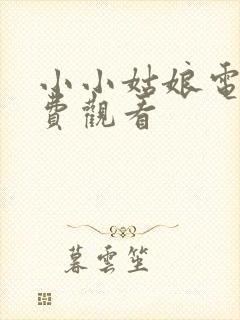 小小姑娘電
費觀看
暮雲笙